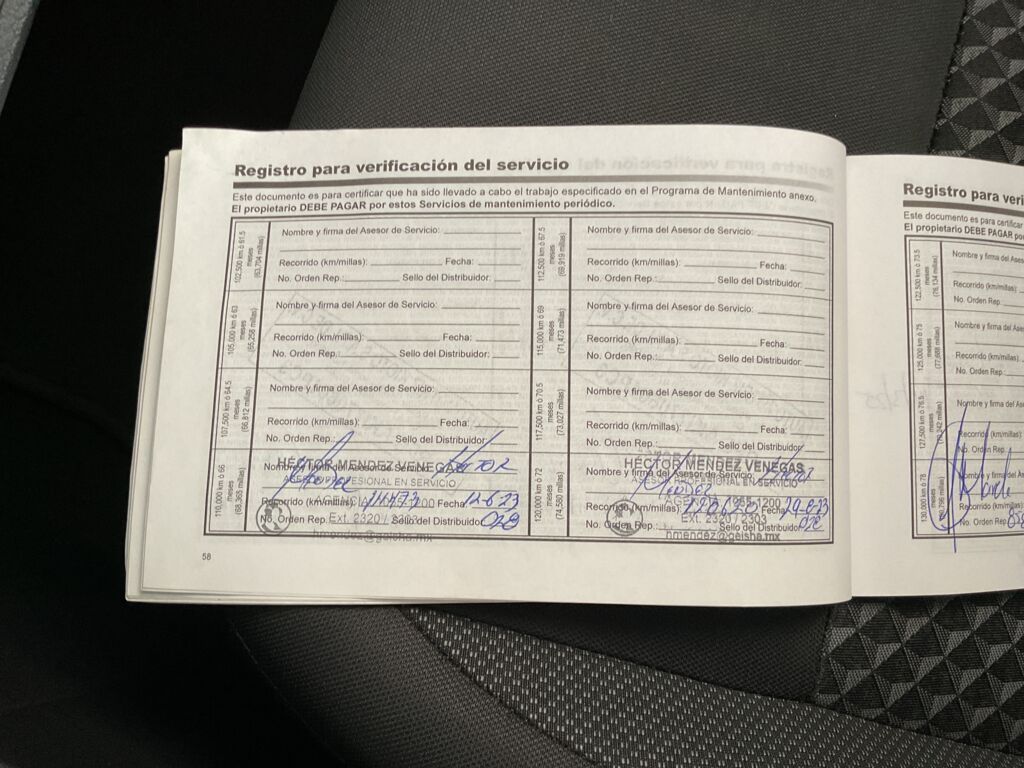 Registro para verificación del servicio
Este documento es para certificar que ha sido llevado a cabo el trabajo especificado en el Programa de Mantenimiento anexo.
El propietario DEBE PAGAR por estos Servicios de mantenimiento periódico.
102,500 km ó 61.5
meses
(63,704 millas)
Nombre y firma del Asesor de Servicio:
Recorrido (km/millas): Fecha:
No. Orden Rep.: Sello del Distribuidor:
105,000 km ó 63
meses
(65,258 millas)
Nombre y firma del Asesor de Servicio:
Recorrido (km/millas): Fecha:
No. Orden Rep.: Sello del Distribuidor:
107,500 km ó 64.5
meses
(66,812 millas)
Nombre y firma del Asesor de Servicio:
Recorrido (km/millas): Fecha:
No. Orden Rep.: Sello del Distribuidor:
110,000 km ó 66
meses
(68,365 millas)
Nombre y firma del Asesor de Servicio:
HÉCTOR MENDEZ VENEGAS
ASESOR PROFESIONAL EN SERVICIO
Recorrido (km/millas): Fecha: 12-6-23
No. Orden Rep. Sello del Distribuidor: 028
Ext. 2320 / 2303
hmendez@geisha.mx
112,500 km ó 67.5
meses
(69,919 millas)
Nombre y firma del Asesor de Servicio:
Recorrido (km/millas): Fecha:
No. Orden Rep.: Sello del Distribuidor:
115,000 km ó 69
meses
(71,473 millas)
Nombre y firma del Asesor de Servicio:
Recorrido (km/millas): Fecha:
No. Orden Rep.: Sello del Distribuidor:
117,500 km ó 70.5
meses
(73,027 millas)
Nombre y firma del Asesor de Servicio:
Recorrido (km/millas): Fecha:
No. Orden Rep.: Sello del Distribuidor:
120,000 km ó 72
meses
(74,580 millas)
HÉCTOR MENDEZ VENEGAS
Nombre y firma del Asesor de Servicio:
ASESOR PROFESIONAL EN SERVICIO
Recorrido (km/millas): Fecha:
No. Orden Rep.: Sello del Distribuidor: 028
Ext. 2320 / 2303
hmendez@geisha.mx
58
Registro para veri
Este documento es para certificar
El propietario DEBE PAGAR po
122,500 km ó 73.5
meses
(76,134 millas)
Nombre y firma del Ase
Recorrido (km/millas):
No. Orden Rep.
125,000 km ó 75
meses
(77,688 millas)
Nombre y firma del Ase
Recorrido (km/millas):
No. Orden Rep.
127,500 km ó 76.5
meses
Nombre y firma del Ase
Recorrido (km/millas)
No. Orden Rep.
130,000 km ó 78
meses
Nombre y firma del A
Recorrido (km/millas)
No. Orden Rep.